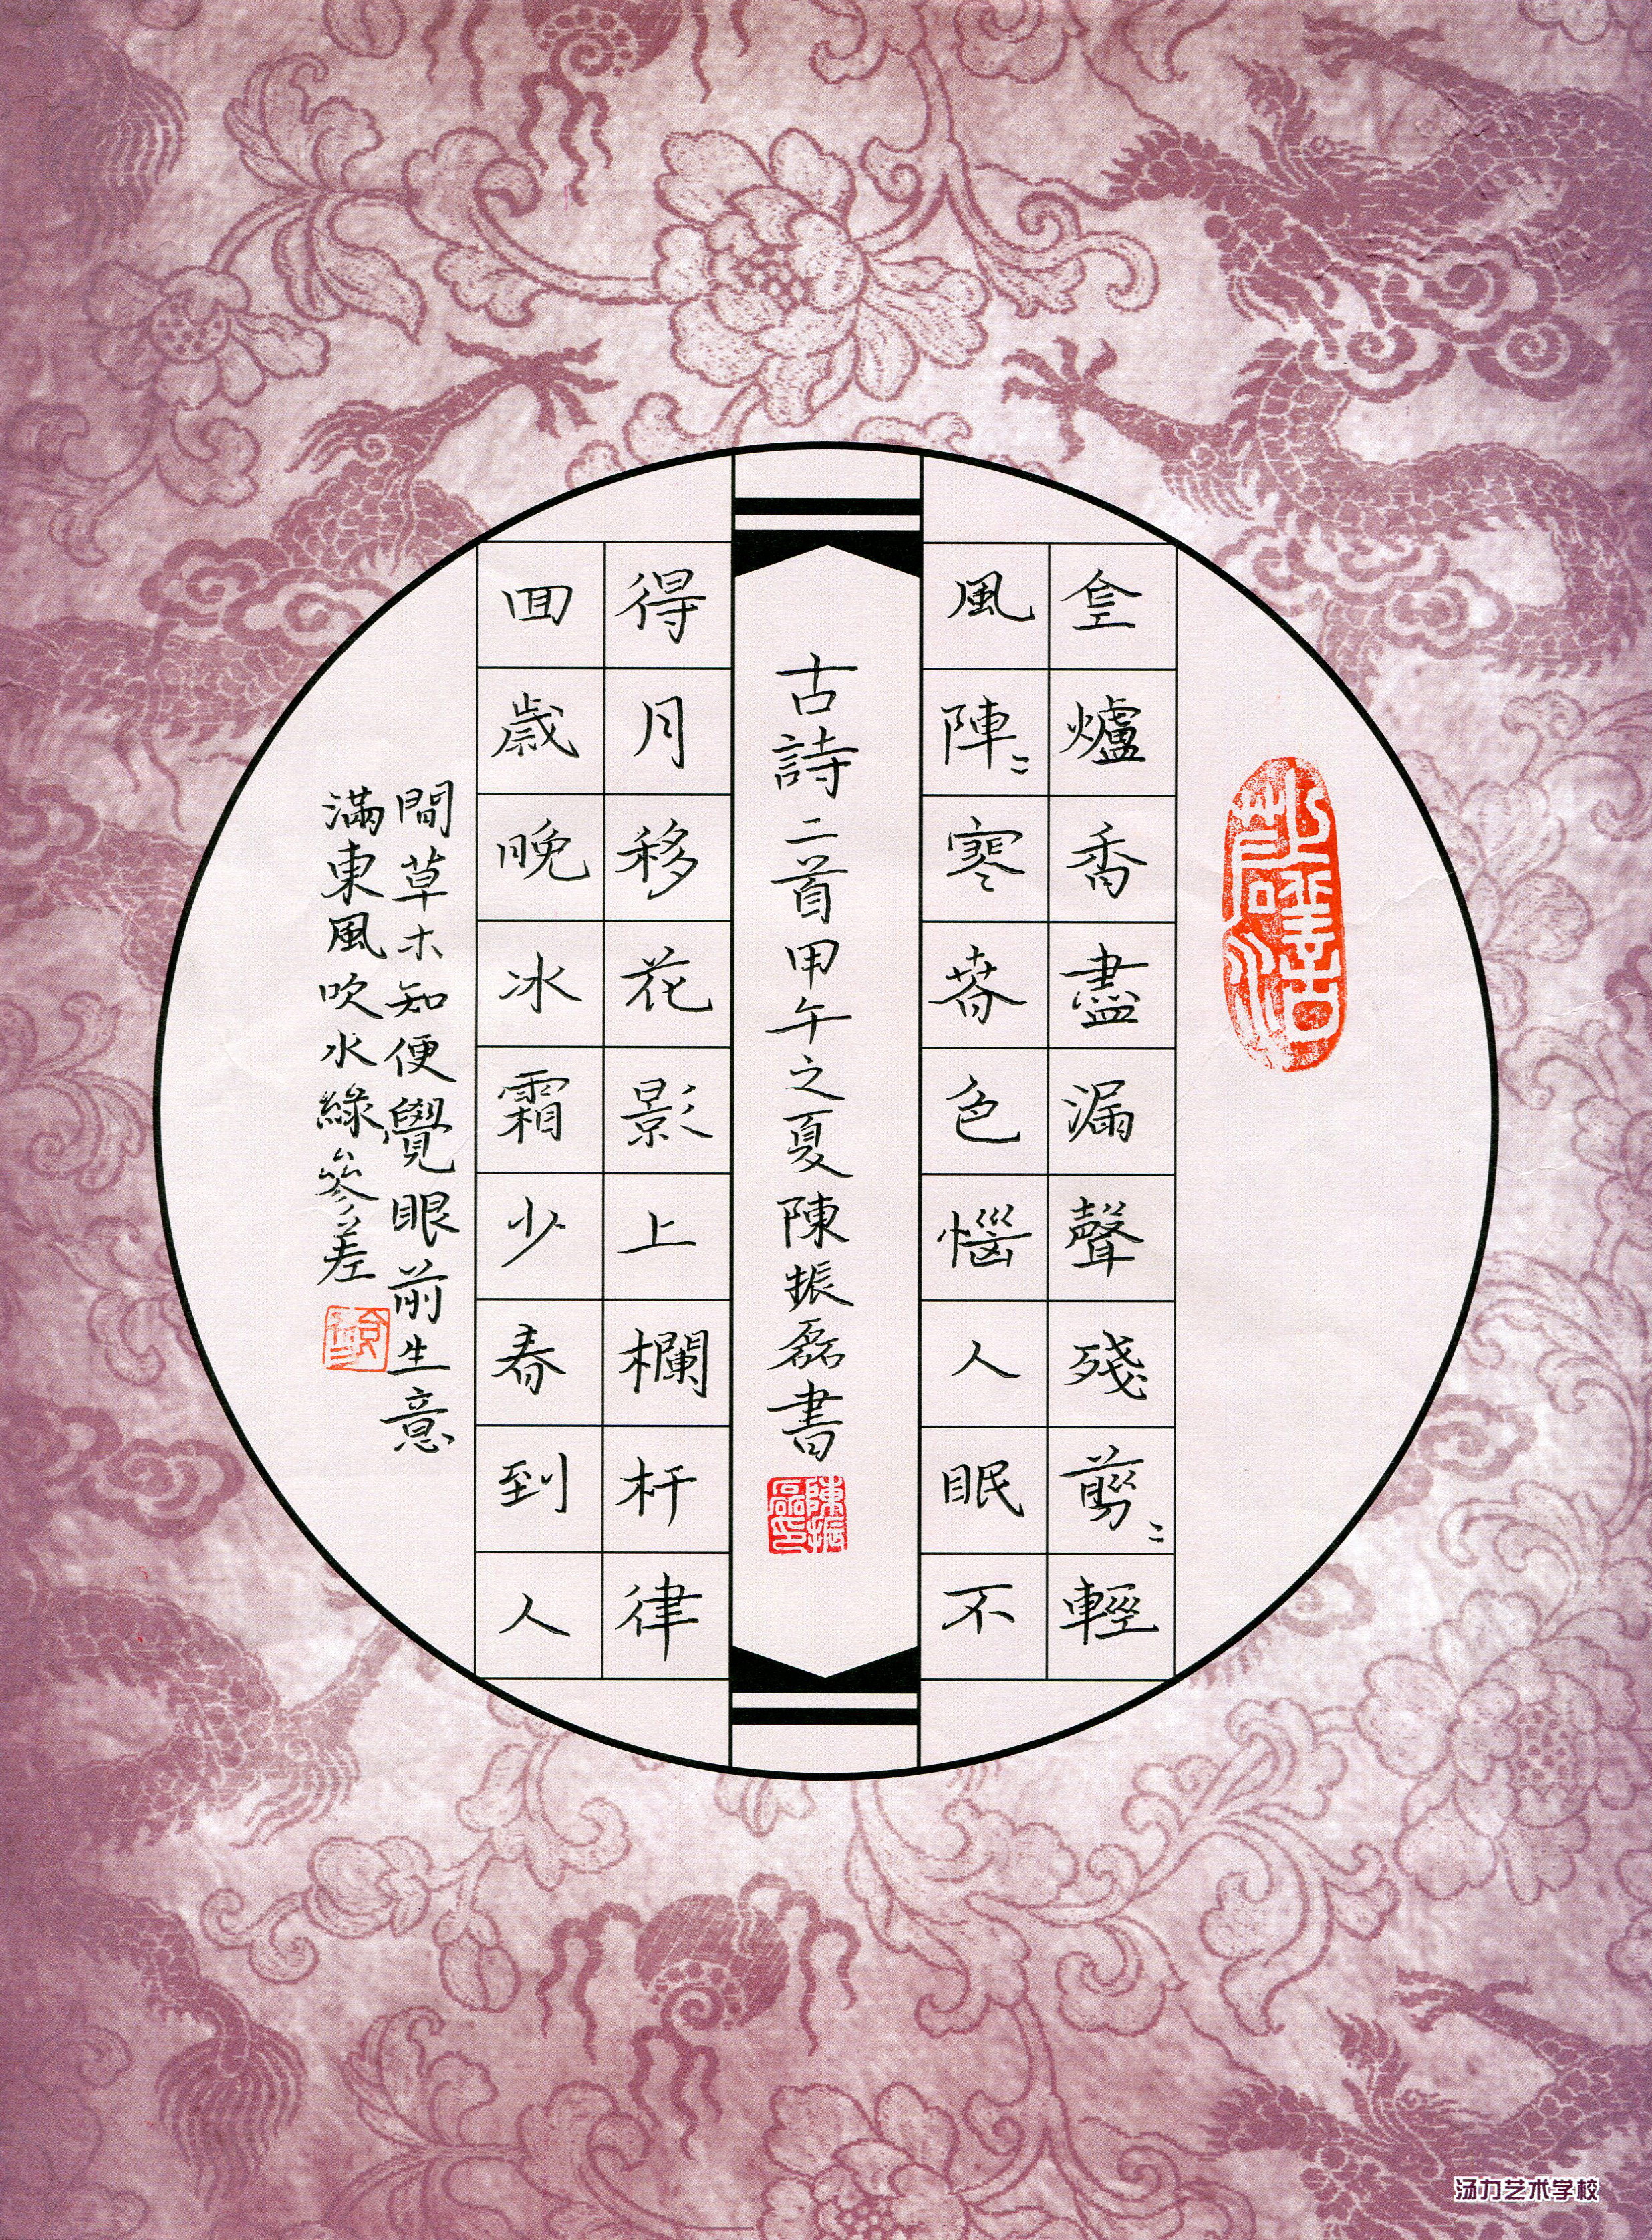 金爐香盡漏聲殘翦〻輕
風陣〻寒春色惱人眠不
古詩二首甲午之夏陳振磊書
陳振磊印
得月移花影上欄杆律
回歲晚冰霜少春到人
間草木知便覺眼前生意
滿東風吹水綠參差
汤力艺术学校